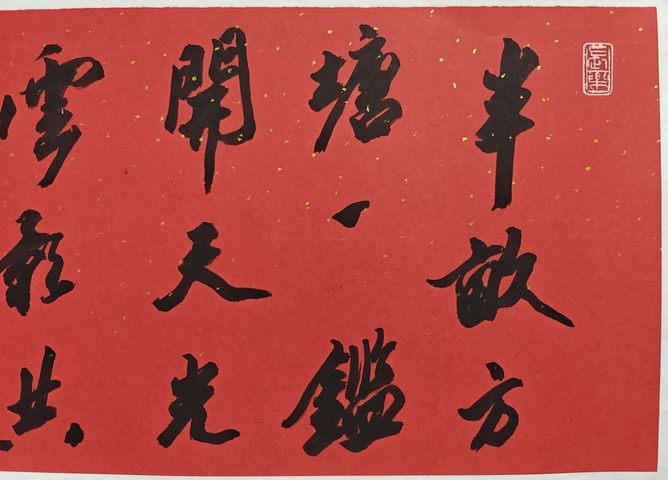 半畝方
塘一鑑
開天光
雲影共